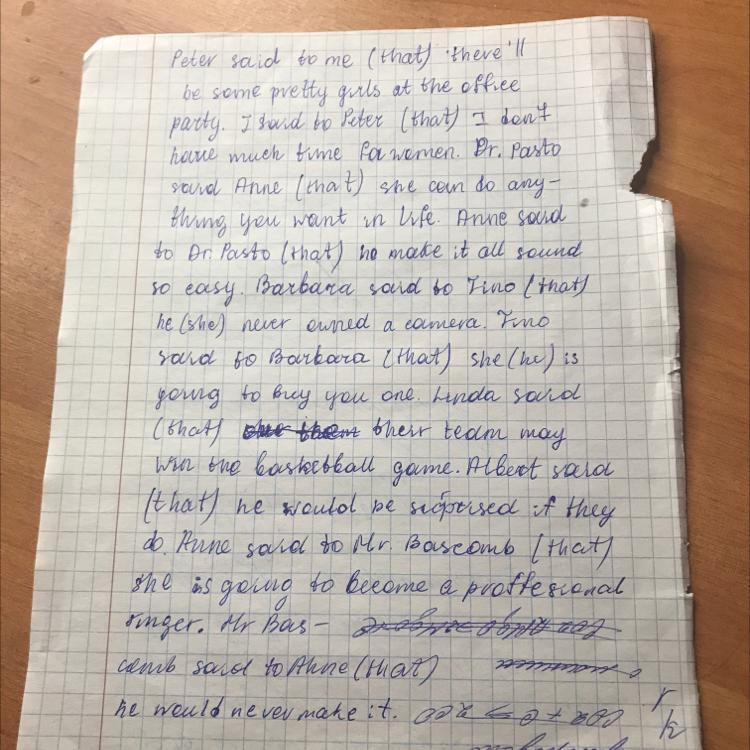 Peter said to me (that) there'll
be some pretty girls at the office
party. I said to Peter (that) I don't
have much time for women. Dr. Pasto
said Anne (that) she can do any-
thing you want in life. Anne said
to Dr. Pasto (that) he make it all sound
so easy. Barbara said to Tino (that)
he (she) never owned a camera. Tino
said to Barbara (that) she (he) is
going to buy you one. Linda said
(that) their team may
win the basketball game. Albert said
(that) he would be surprised if they
do. Anne said to Mr. Bascomb (that)
she is going to become a proffesional
singer. Mr Bas-
comb said to Anne (that)
he would never make it.